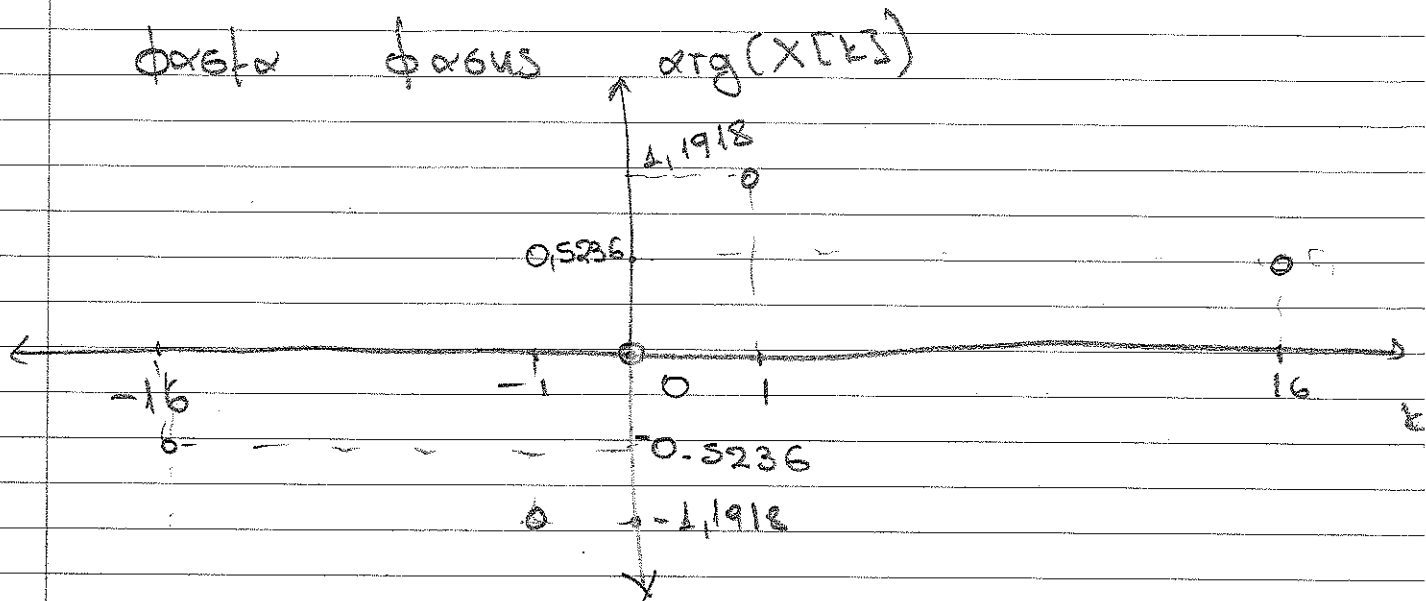 φασμα φασης arg(X[k])
1,1918
0,5236
-16 -1 0 1 16
k
-0.5236
-1,1918